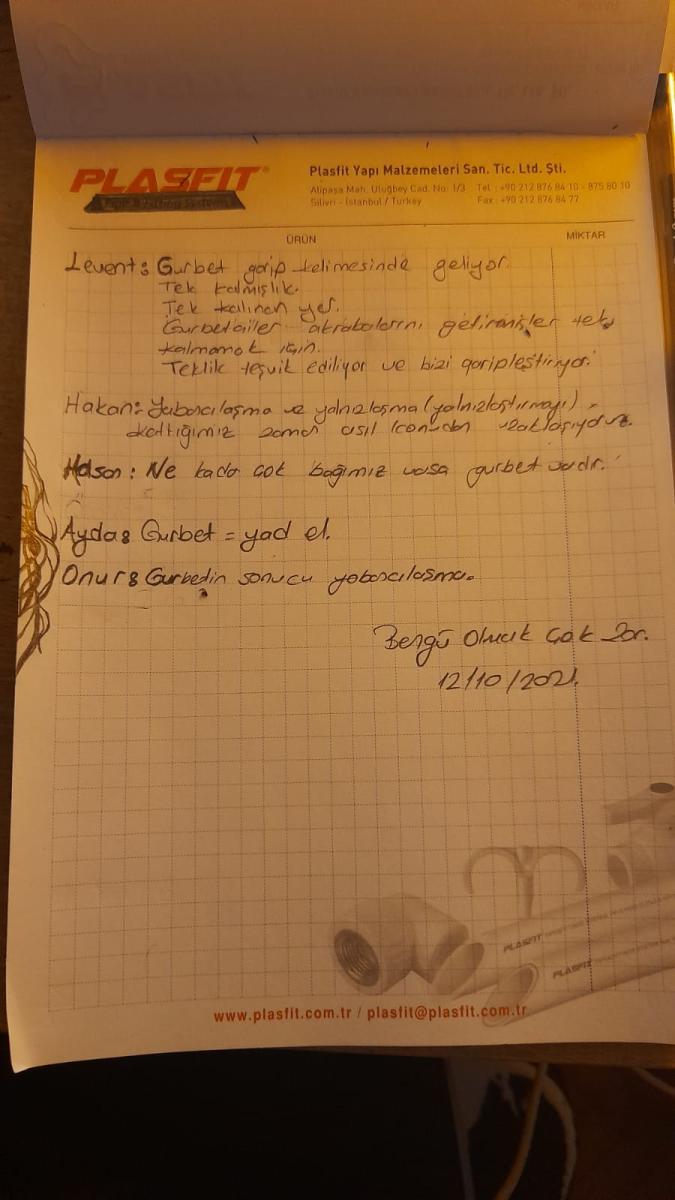 PLASFIT®
Plasfit Yapı Malzemeleri San. Tic. Ltd. Şti.
Alipaşa Mah. Uluğbey Cad. No: 1/3 Tel : +90 212 876 84 10 - 875 80 10
Silivri - İstanbul / Turkey Fax : +90 212 876 84 77
ÜRÜN MİKTAR
Levent: Gurbet garip kelimesinde geliyor.
Tek kalmışlık.
Tek kalınan yer.
Gurbetçiler akrabalarını getirmişler tek
kalmamak için.
Teklik teşvik ediliyor ve bizi garipleştiriyor.
Hakan: Yabancılaşma ve yalnızlaşma (yalnızlaştırmayı)
kattığımız zaman asıl konudan uzaklaşıyoruz.
Hasan: Ne kadar çok bağımız varsa gurbet vardır.
Ayda: Gurbet = yad el.
Onur: Gurbedin sonucu yabancılaşma.
Bengü Olmak Çok Zor.
12/10/2021.
PLASFIT
PLASFIT
www.plasfit.com.tr / plasfit@plasfit.com.tr